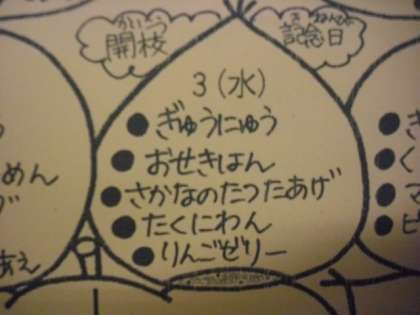 かいこう
開校
きねんび
記念日
3(水)
●ぎゅうにゅう
●おせきはん
●さかなのたつたあげ
●たくにわん
●りんごゼリー
めん